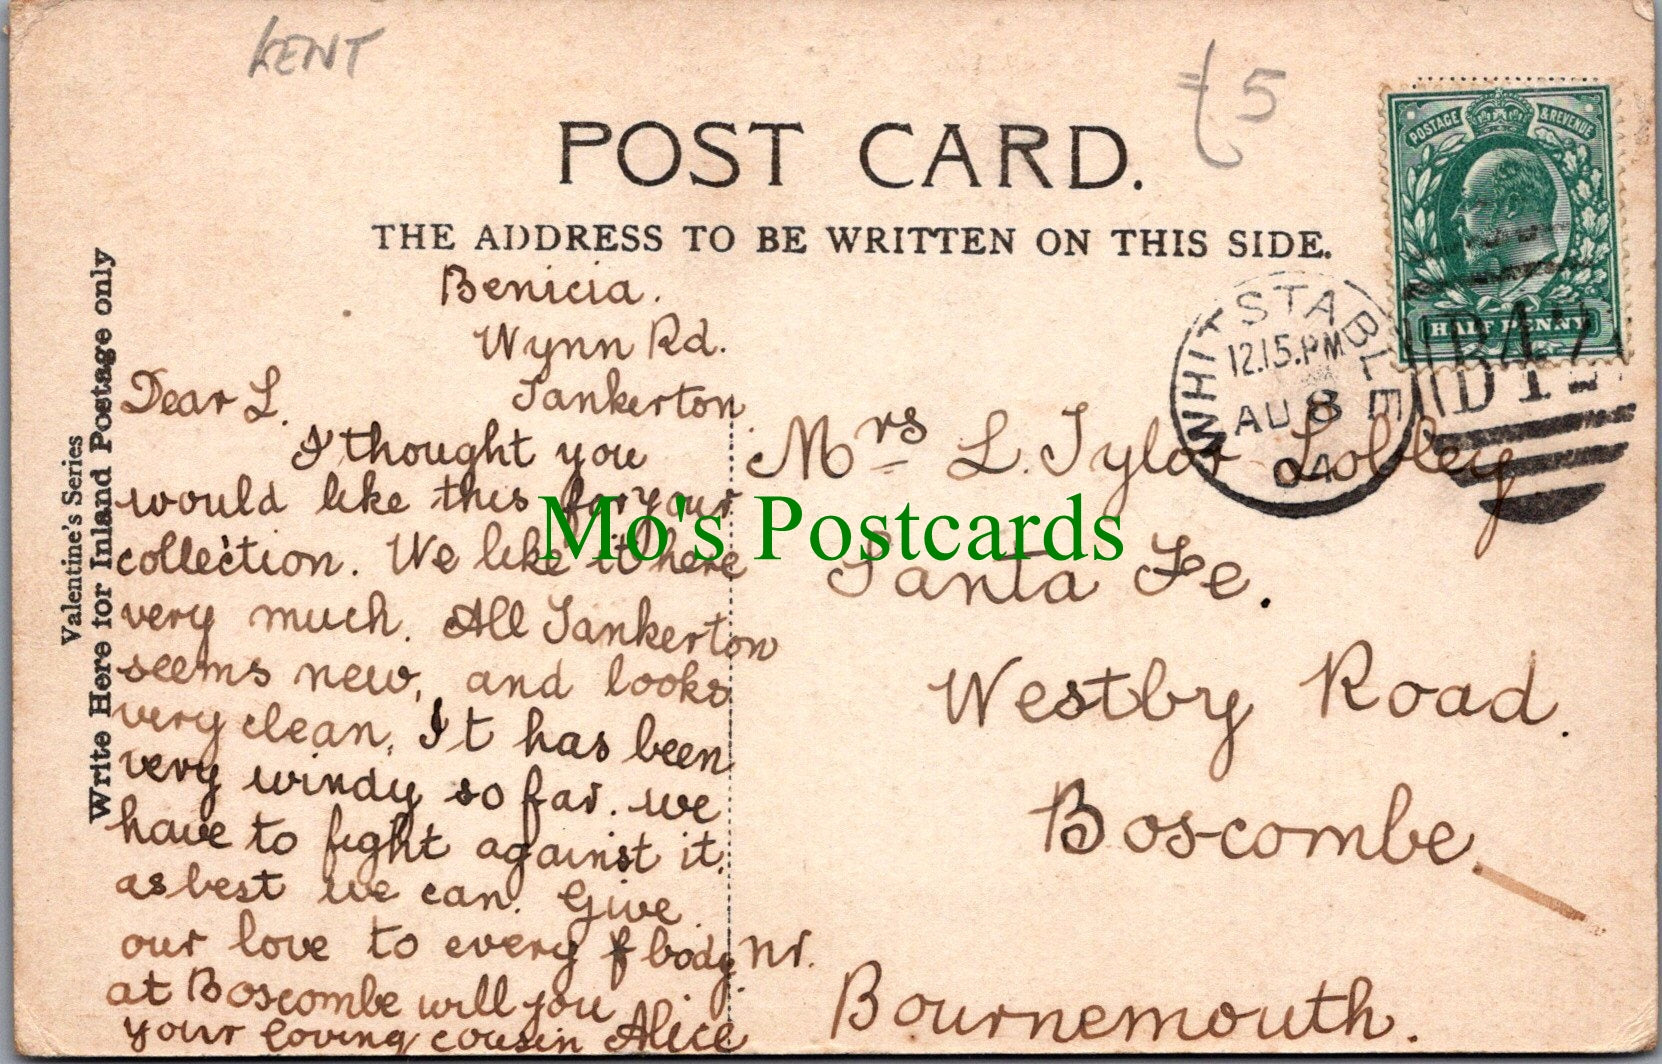 KENT
£5
POST CARD.
POSTAGE & REVENUE
HALF PENNY
THE ADDRESS TO BE WRITTEN ON THIS SIDE.
Valentine's Series
Write Here for Inland Postage only
WHITSTABLE
12.15.PM
AU 8
04
Benicia.
Wynn Rd.
Tankerton
Dear L.
I thought you
would like this for your
collection. We like it here
very much. All Tankerton
seems new, and looks
very clean, It has been
very windy so far. we
have to fight against it.
as best we can. Give
our love to every body
at Boscombe will you
your loving cousin Alice
Mrs L. Tylor Lobley
Santa Fe.
Westby Road.
Boscombe
nr.
Bournemouth.
Mo's Postcards